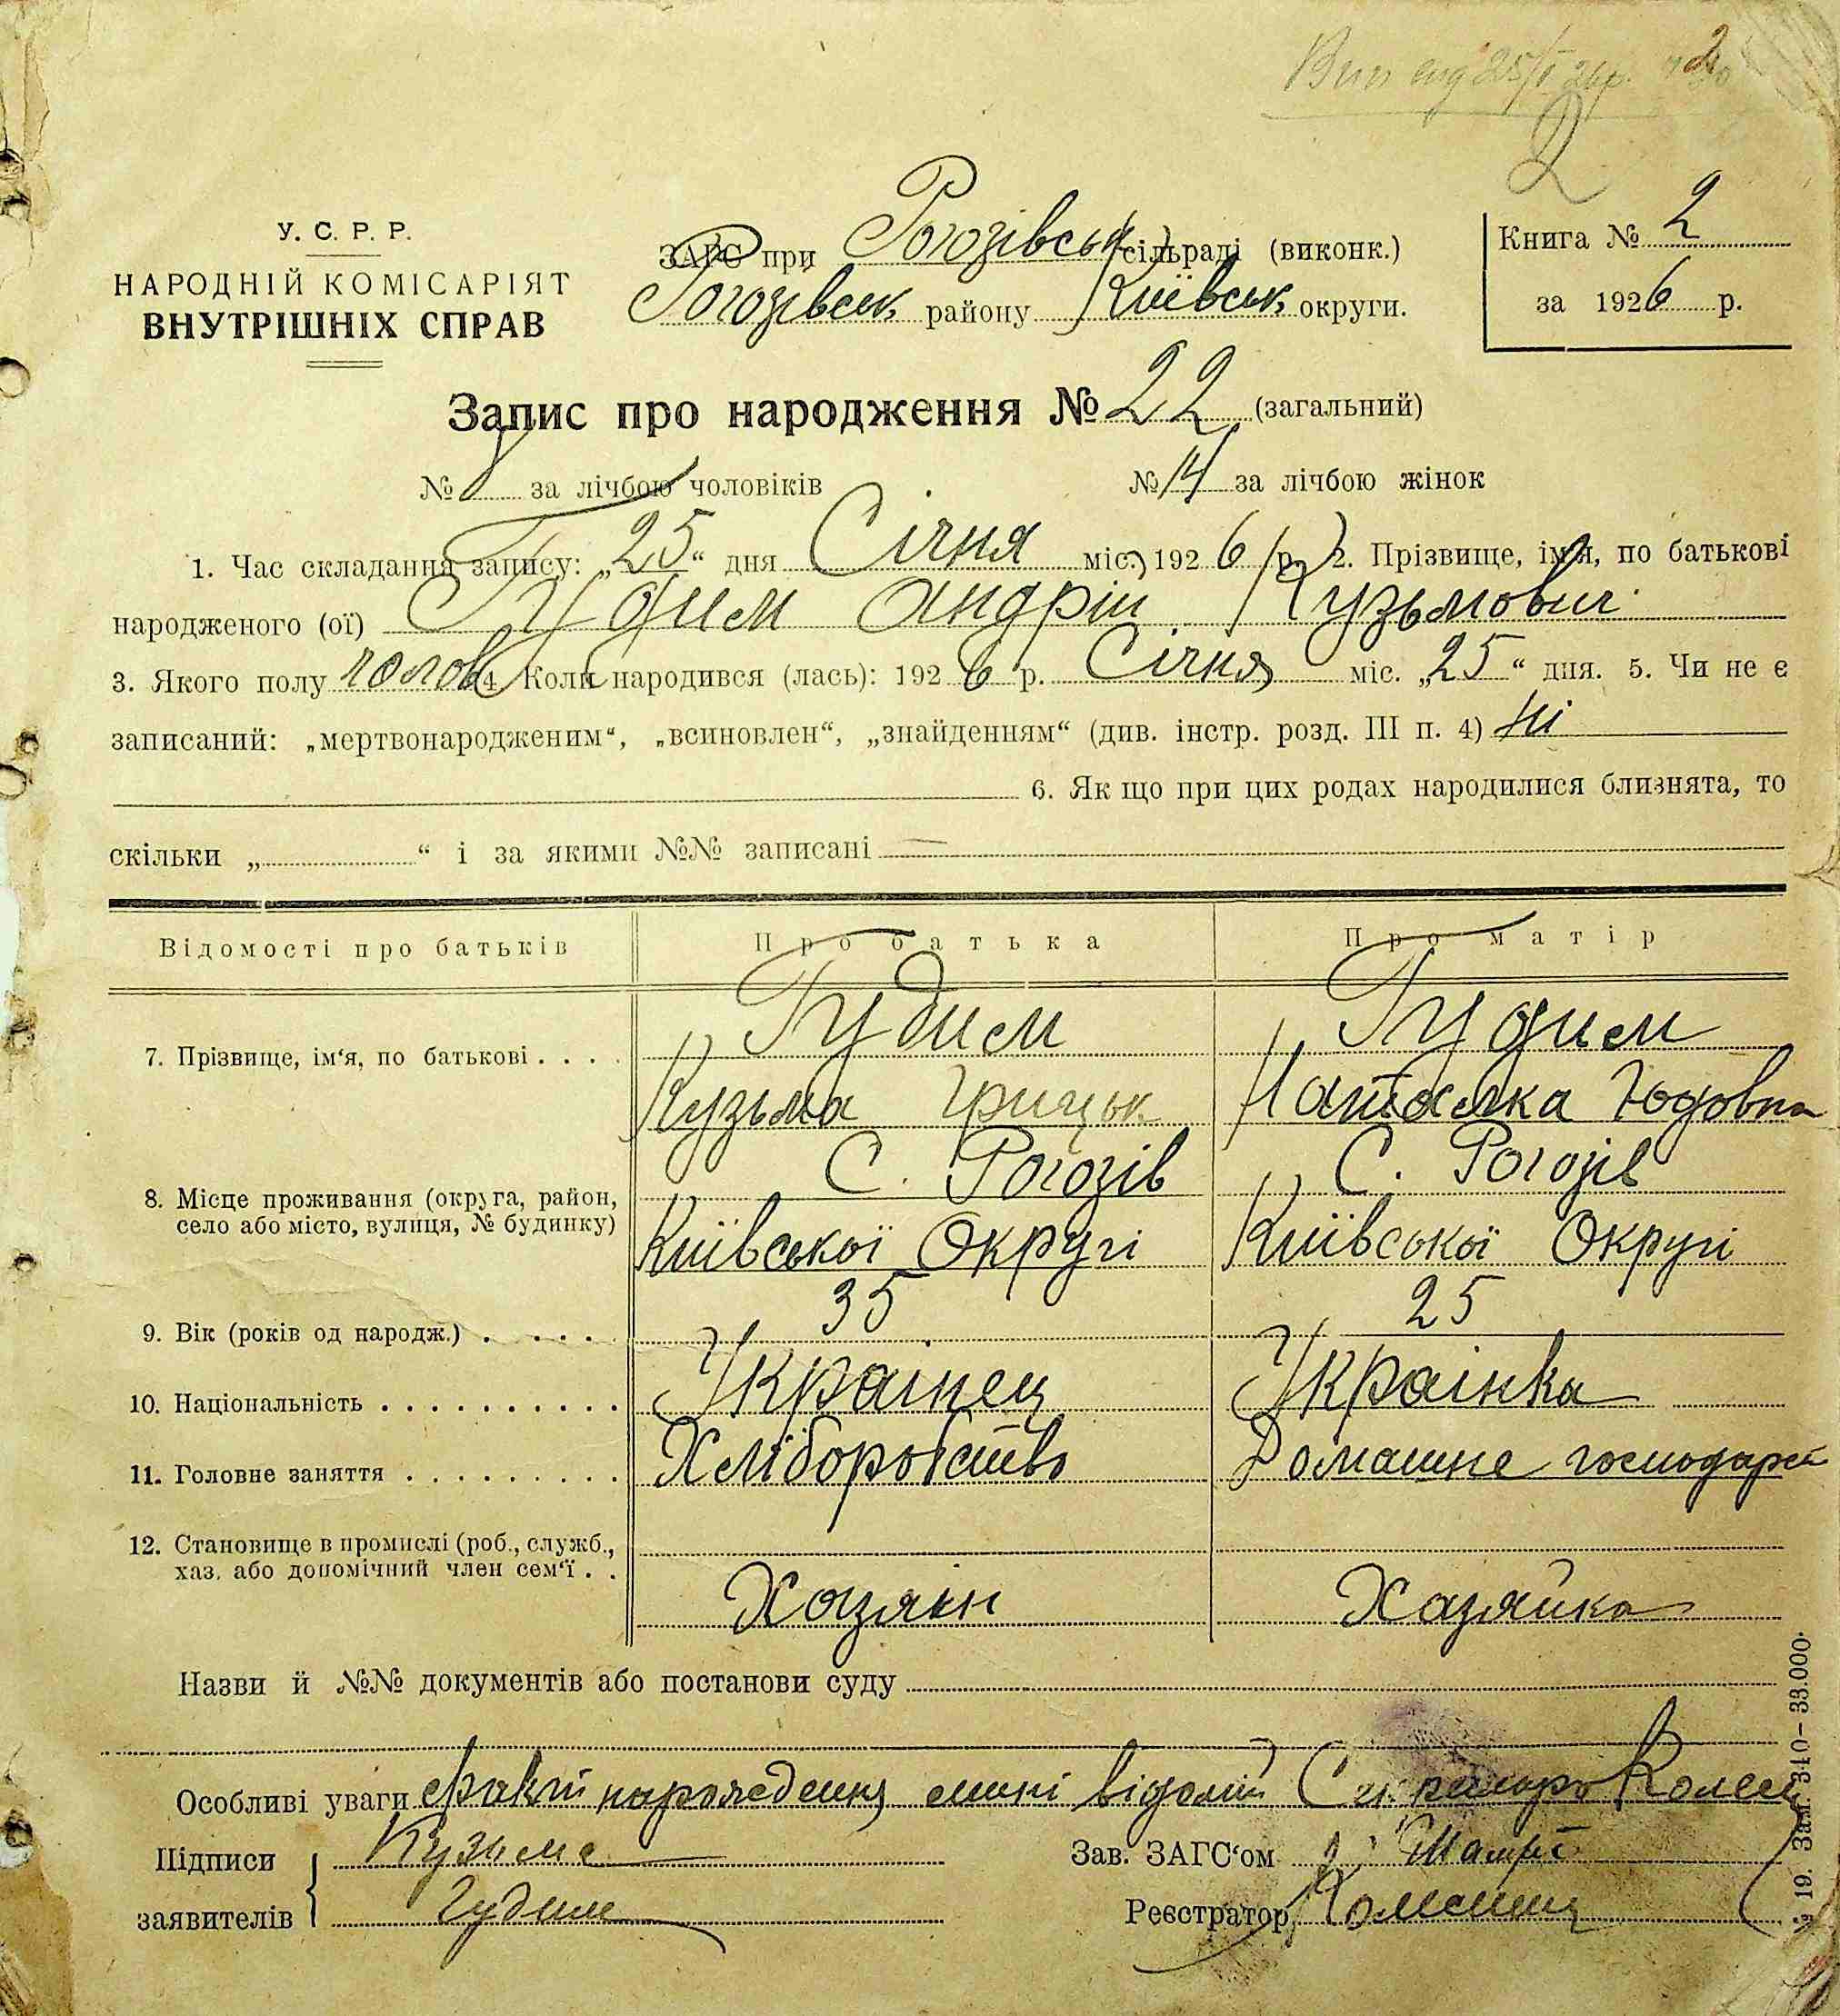 2
2
У. С. Р. Р.
НАРОДНІЙ КОМІСАРІЯТ
ВНУТРІШНІХ СПРАВ
ЗАГС при Рогозівськ сільраді (виконк.)
Рогозівськ району Київськ округи.
Книга № 2
за 1926 р.
Запис про народження № 22 (загальний)
№ 8 за лічбою чоловіків № 14 за лічбою жінок
1. Час складання запису: „25“ дня Січня міс. 1926 р. 2. Прізвище, ім'я, по батькові
народженого (ої) Гудим Андрій Кузьмович
3. Якого полу чолов 4. Коли народився (лась): 1926 р. Січня міс. „25“ дня. 5. Чи не є
записаний: „мертвонародженим“, „всиновлен“, „знайденням“ (див. інстр. розд. III п. 4) Ні
6. Як що при цих родах народилися близнята, то
скільки „ “ і за якими №№ записані —
Відомості про батьків Про батька Про матір
7. Прізвище, ім'я, по батькові . . . . Гудим Гудим
Кузьма Грицьк Наталка Юдовна
8. Місце проживання (округа, район, село або місто, вулиця, № будинку) С. Рогозів С. Рогозів
Київської Округі Київської Округі
9. Вік (років од народж.) . . . . . 35 25
10. Національність . . . . . . . . . . Українец Українка
11. Головне заняття . . . . . . . . . Хліборобство Домашне господарст
12. Становище в промислі (роб., служб.,
хаз. або допомічний член сем'ї . .
Хазяін Хазяйка
Назви й №№ документів або постанови суду
Особливі уваги Факт народження мині відомий
Підписи Кузьма
заявителів Гудим
Зав. ЗАГС'ом
Реєстратор
№ 19. Зам. 310–33.000.